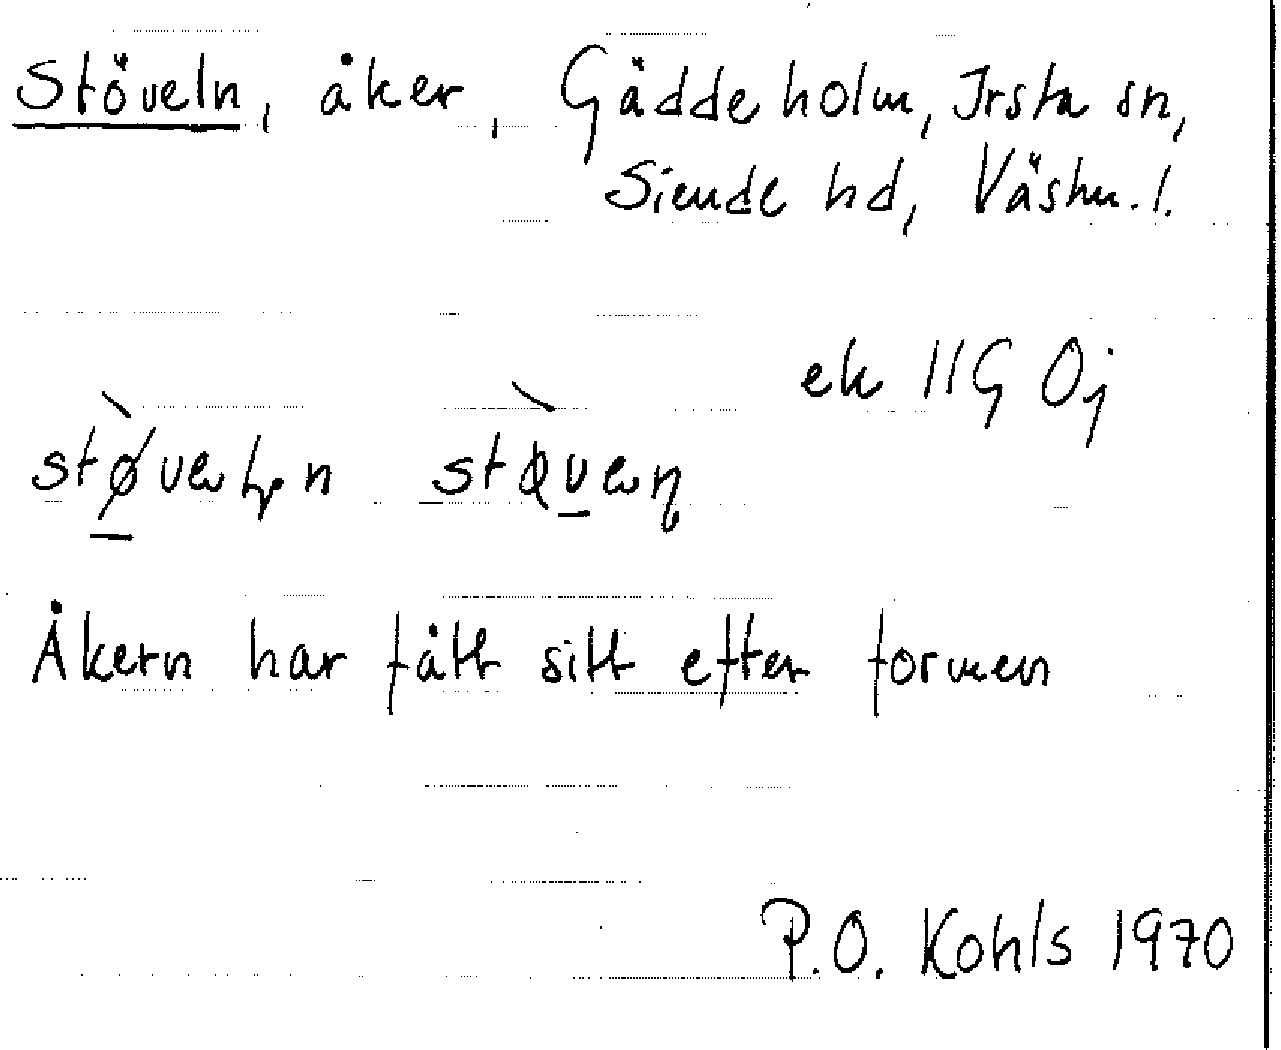 Stöveln, åker, Gäddeholm, Irsta sn,
Siende hd, Västm. l.
ek 11G 0j
Åkern har fått sitt efter formen
P.O. Kohls 1970